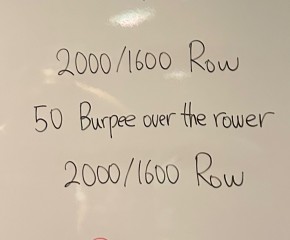 2000/1600 Row
50 Burpee over the rower
2000/1600 Row